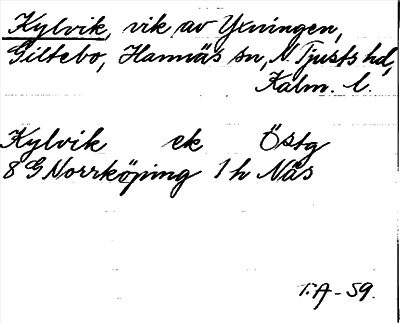 Kylvik, vik av Yxningen,
Giltebo, Hannäs sn, N. Tjusts hd,
Kalm. l.
Kylvik ek Östg
8 G Norrköping 1 h Näs
T.A-59.